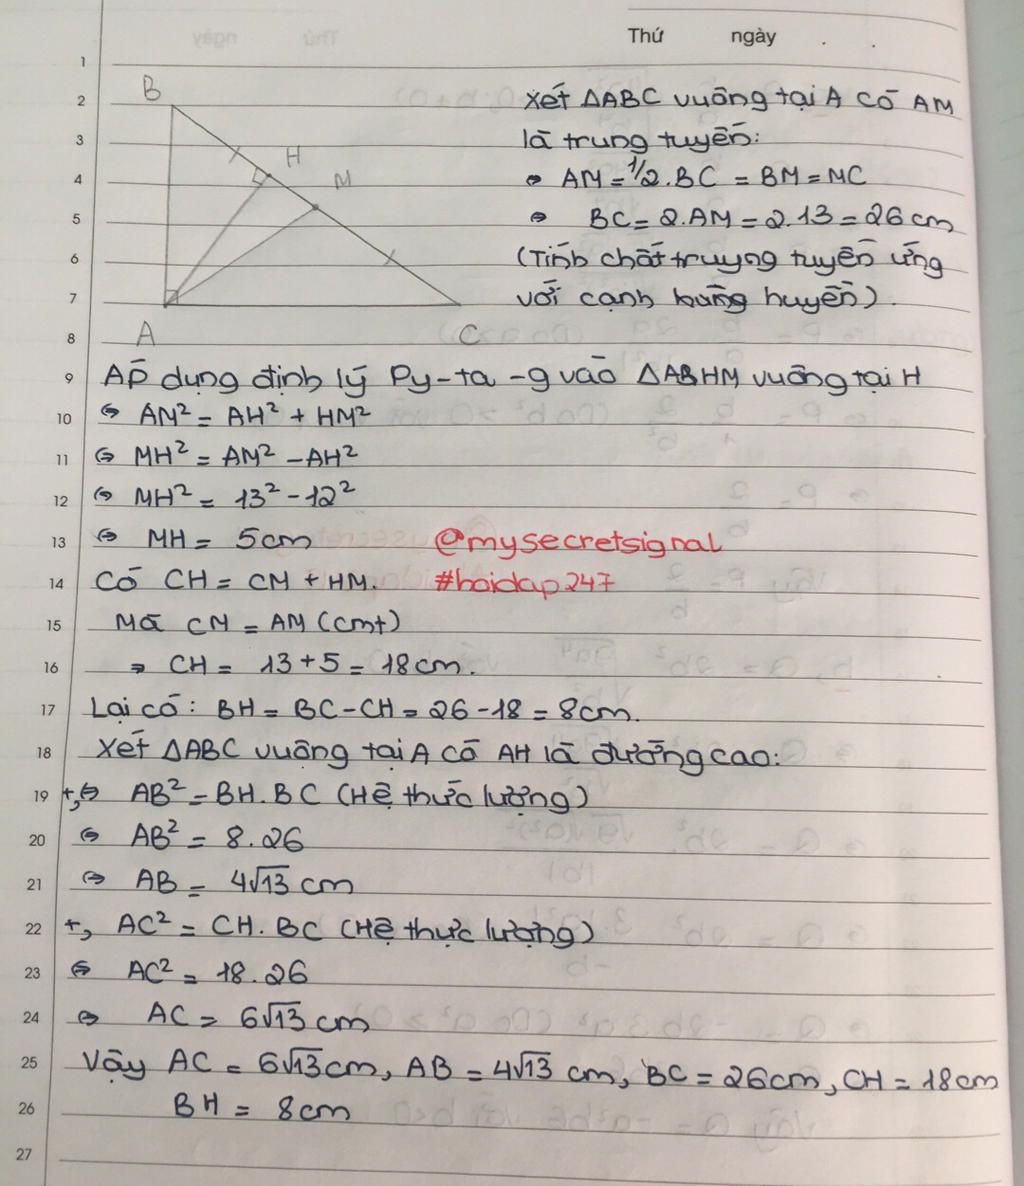 Thứ ngày . .
1
2
3
4
5
6
7
8
B
H
M
A
C
Xét ΔABC vuông tại A có AM
là trung tuyến:
⇒ AM = 1/2.BC = BM = MC
⇒ BC = 2.AM = 2.13 = 26 cm
(Tính chất truyng tuyến ứng
với cạnh huyền).
9 Áp dụng định lý Py-ta-g vào ΔAHM vuông tại H
10 ⇔ AM² = AH² + HM²
11 ⇔ MH² = AM² - AH²
12 ⇔ MH² = 13² - 12²
13 ⇔ MH = 5cm @mysecretsignal
14 Có CH = CM + HM. #hoidap247
15 Mà CM = AM (cmt)
16 ⇒ CH = 13 + 5 = 18 cm.
17 Lại có: BH = BC - CH = 26 - 18 = 8cm.
18 Xét ΔABC vuông tại A có AH là đường cao:
19 +, ⇔ AB² = BH. BC (Hệ thức lượng)
20 ⇔ AB² = 8.26
21 ⇔ AB = 4√13 cm
22 +, AC² = CH. BC (Hệ thức lượng)
23 ⇔ AC² = 18.26
24 ⇔ AC = 6√13 cm
25 Vậy AC = 6√13 cm, AB = 4√13 cm, BC = 26cm, CH = 18cm
26 BH = 8cm
27